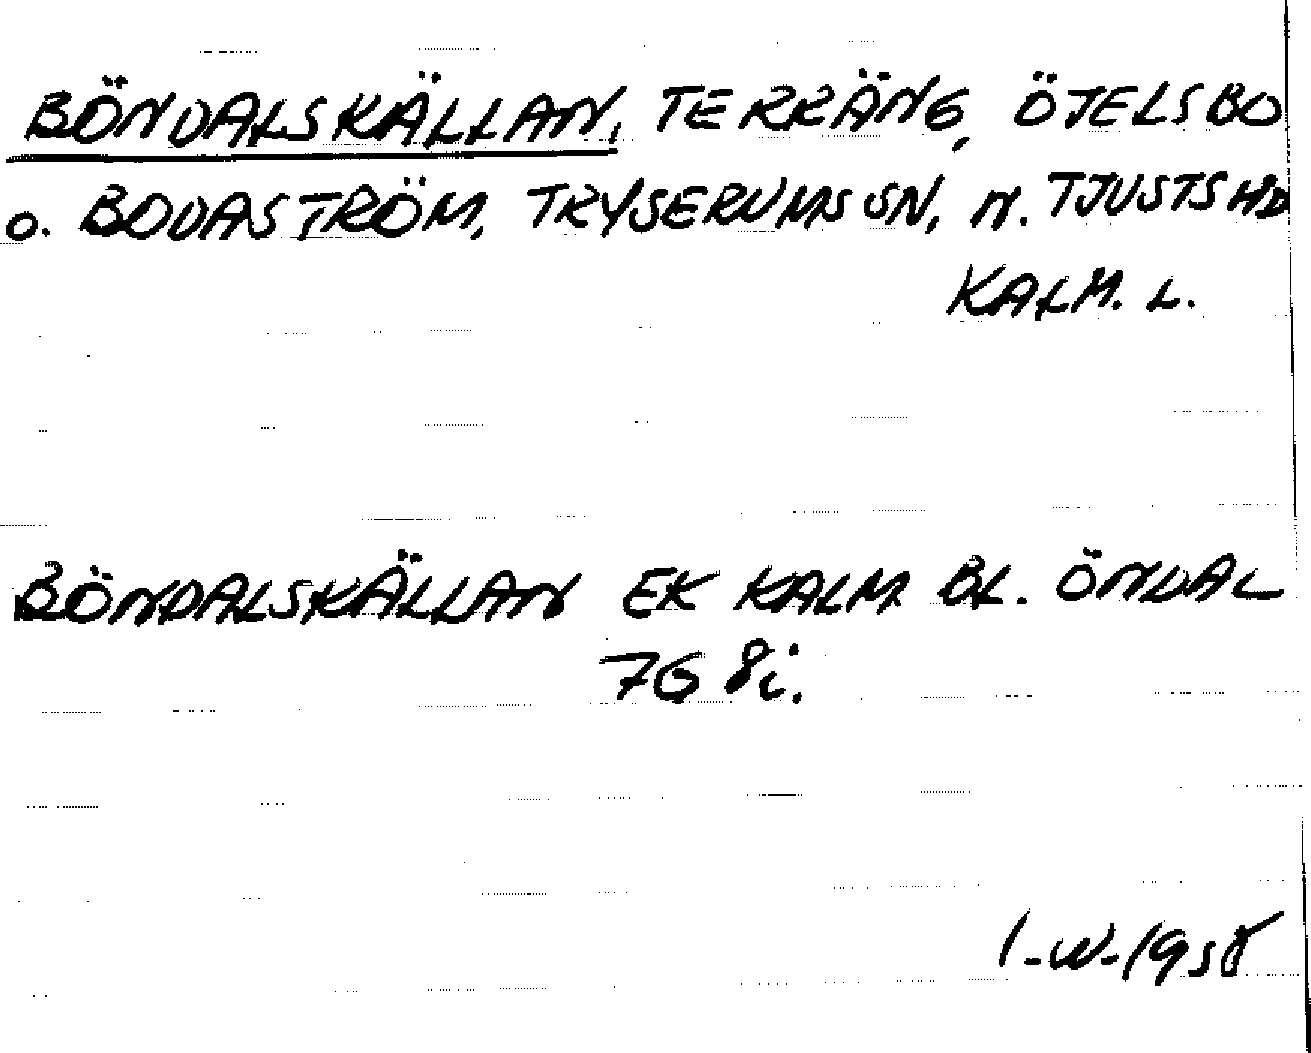 BÖNDALSKÄLLAN, TERRÄNG, ÖJELSBO
O. BODASTRÖM, TRYSERUMS SN, N. TJUSTS HD
KALM. L.
BÖNDALSKÄLLAN EK KALM. BL. ÖNDAL
7G 8i.
I-W-1958